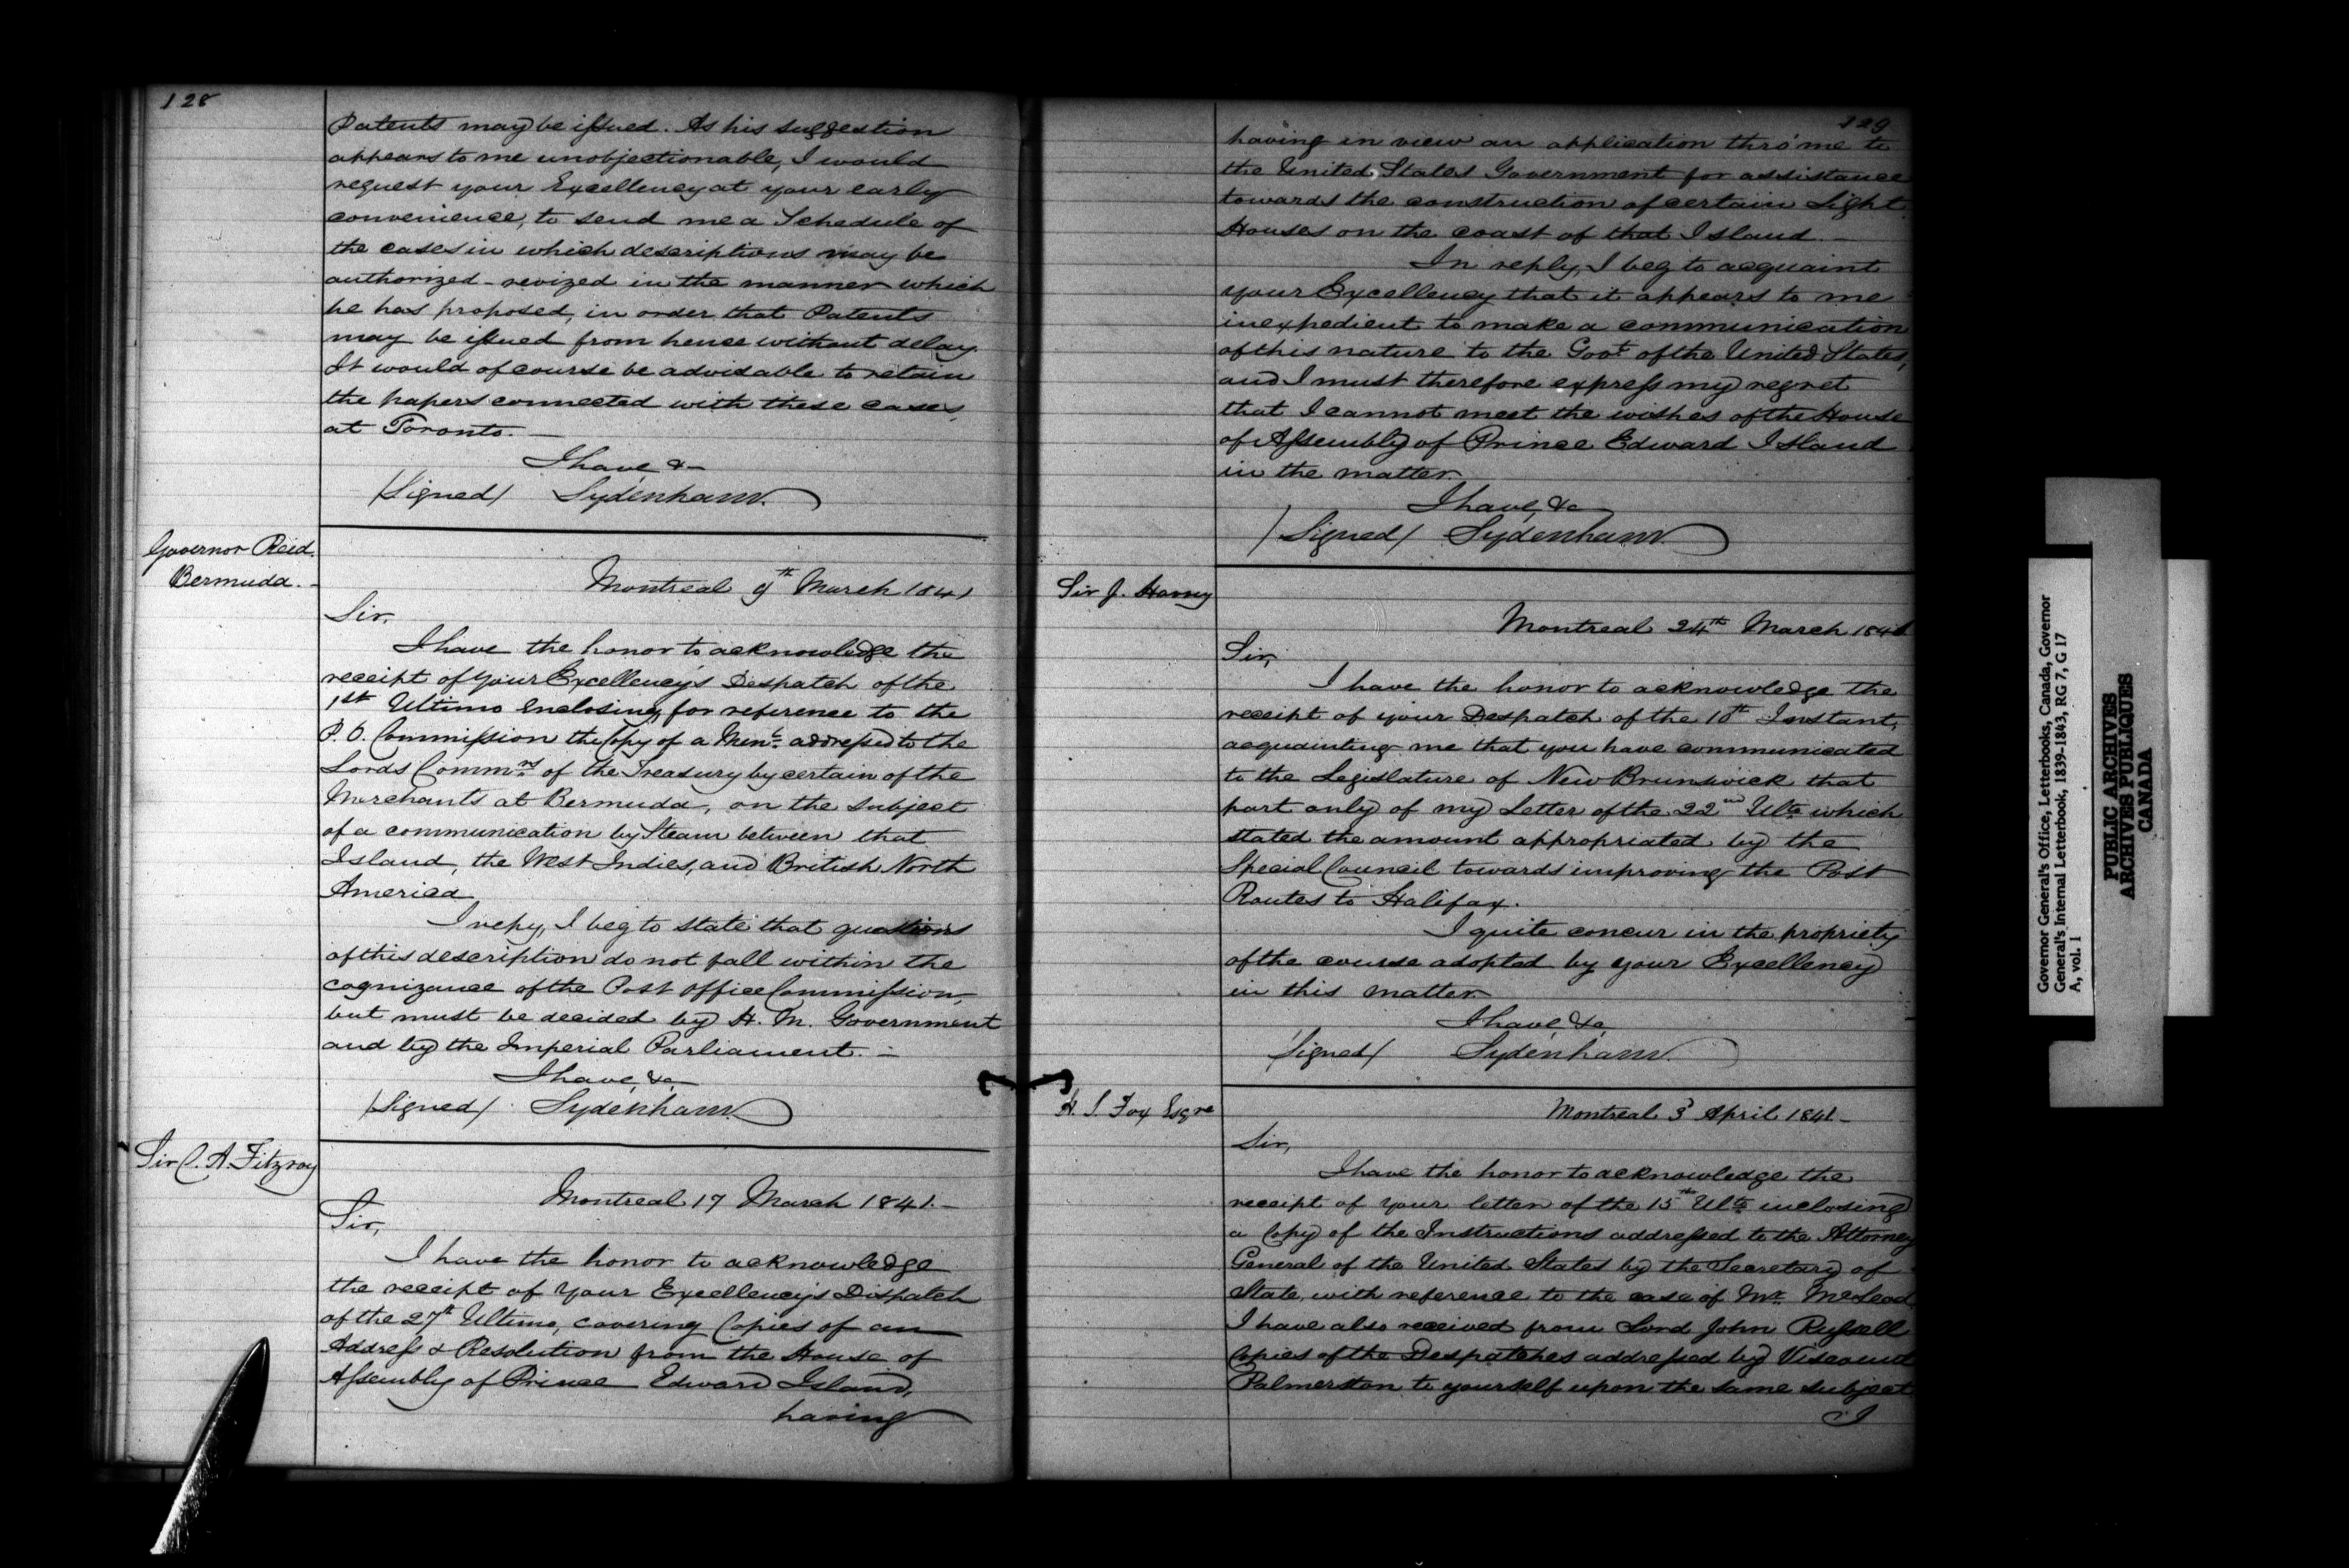 128
Patents may be issued. As his suggestion
appears to me unobjectionable, I would
request your Excellency at your early
convenience, to send me a Schedule of
the cases in which descriptions may be
authorized - revized in the manner which
he has proposed, in order that Patents
may be issued from hence without delay.
It would of course be advisable to retain
the papers connected with these cases,
at Toronto. —
I have &-
/Signed/ Sydenham.
Governor Reid.
Bermuda. -
Montreal 9th March 1841
Sir,
I have the honor to acknowledge the
receipt of your Excellency's Despatch of the
1st Ultimo enclosing, for reference to the
P. O. Commission the Copy of a Meml. addressed to the
Lords Commrs of the Treasury by certain of the
Merchants at Bermuda, on the subject
of a communication by Steam between that
Island, the West Indies, and British North
America
I repy, I beg to state that questions
of this description do not fall within the
cognizance of the Post Office Commission,
but must be decided by H. M. Government
and by the Imperial Parliament. -
I have, &c,
/Signed/ Sydenham.
Sir C. A. Fitzroy
Montreal 17 March 1841. -
Sir,
I have the honor to acknowledge
the receipt of your Excellency's Dispatch
of the 27th Ultimo, covering Copies of an
Address & Resolution from the House of
Assembly of Prince Edward Island,
having
129
having in view an application thro' me to
the United States Government for assistance
towards the construction of certain Light
Houses on the coast of that Island. -
In reply, I beg to acquaint
your Excellency that it appears to me
inexpedient to make a communication
of this nature to the Govt of the United States,
and I must therefore express my regret
that I cannot meet the wishes of the House
of Assembly of Prince Edward Island
in the matter.
I have, &c
/Signed/ Sydenham.
Sir J. Harvey
Montreal 24th March 1841
Sir,
I have the honor to acknowledge the
receipt of your Despatch of the 10th Instant,
acquainting me that you have communicated
to the Legislature of New Brunswick that
part only of my Letter of the 22nd Ulto which
stated the amount appropriated by the
Special Council towards improving the Post
Routes to Halifax.
I quite concur in the propriety
of the course adopted by your Excellency
in this matter.
I have, &c,
/Signed/ Sydenham.
H. S. Fox Esqre
Montreal 3d April 1841. -
Sir,
I have the honor to acknowledge the
receipt of your letter of the 15th Ulto inclosing
a Copy of the Instructions addressed to the Attorney
General of the United States by the Secretary of
State, with reference to the case of Mr. McLeod
I have also received from Lord John Russell
Copies of the Despatches addressed by Viscount
Palmerston to yourself upon the same subject
I
Governor General's Office, Letterbooks, Canada, Governor
General's Internal Letterbook, 1839-1843, RG 7, G 17
A, vol. 1
PUBLIC ARCHIVES
ARCHIVES PUBLIQUES
CANADA